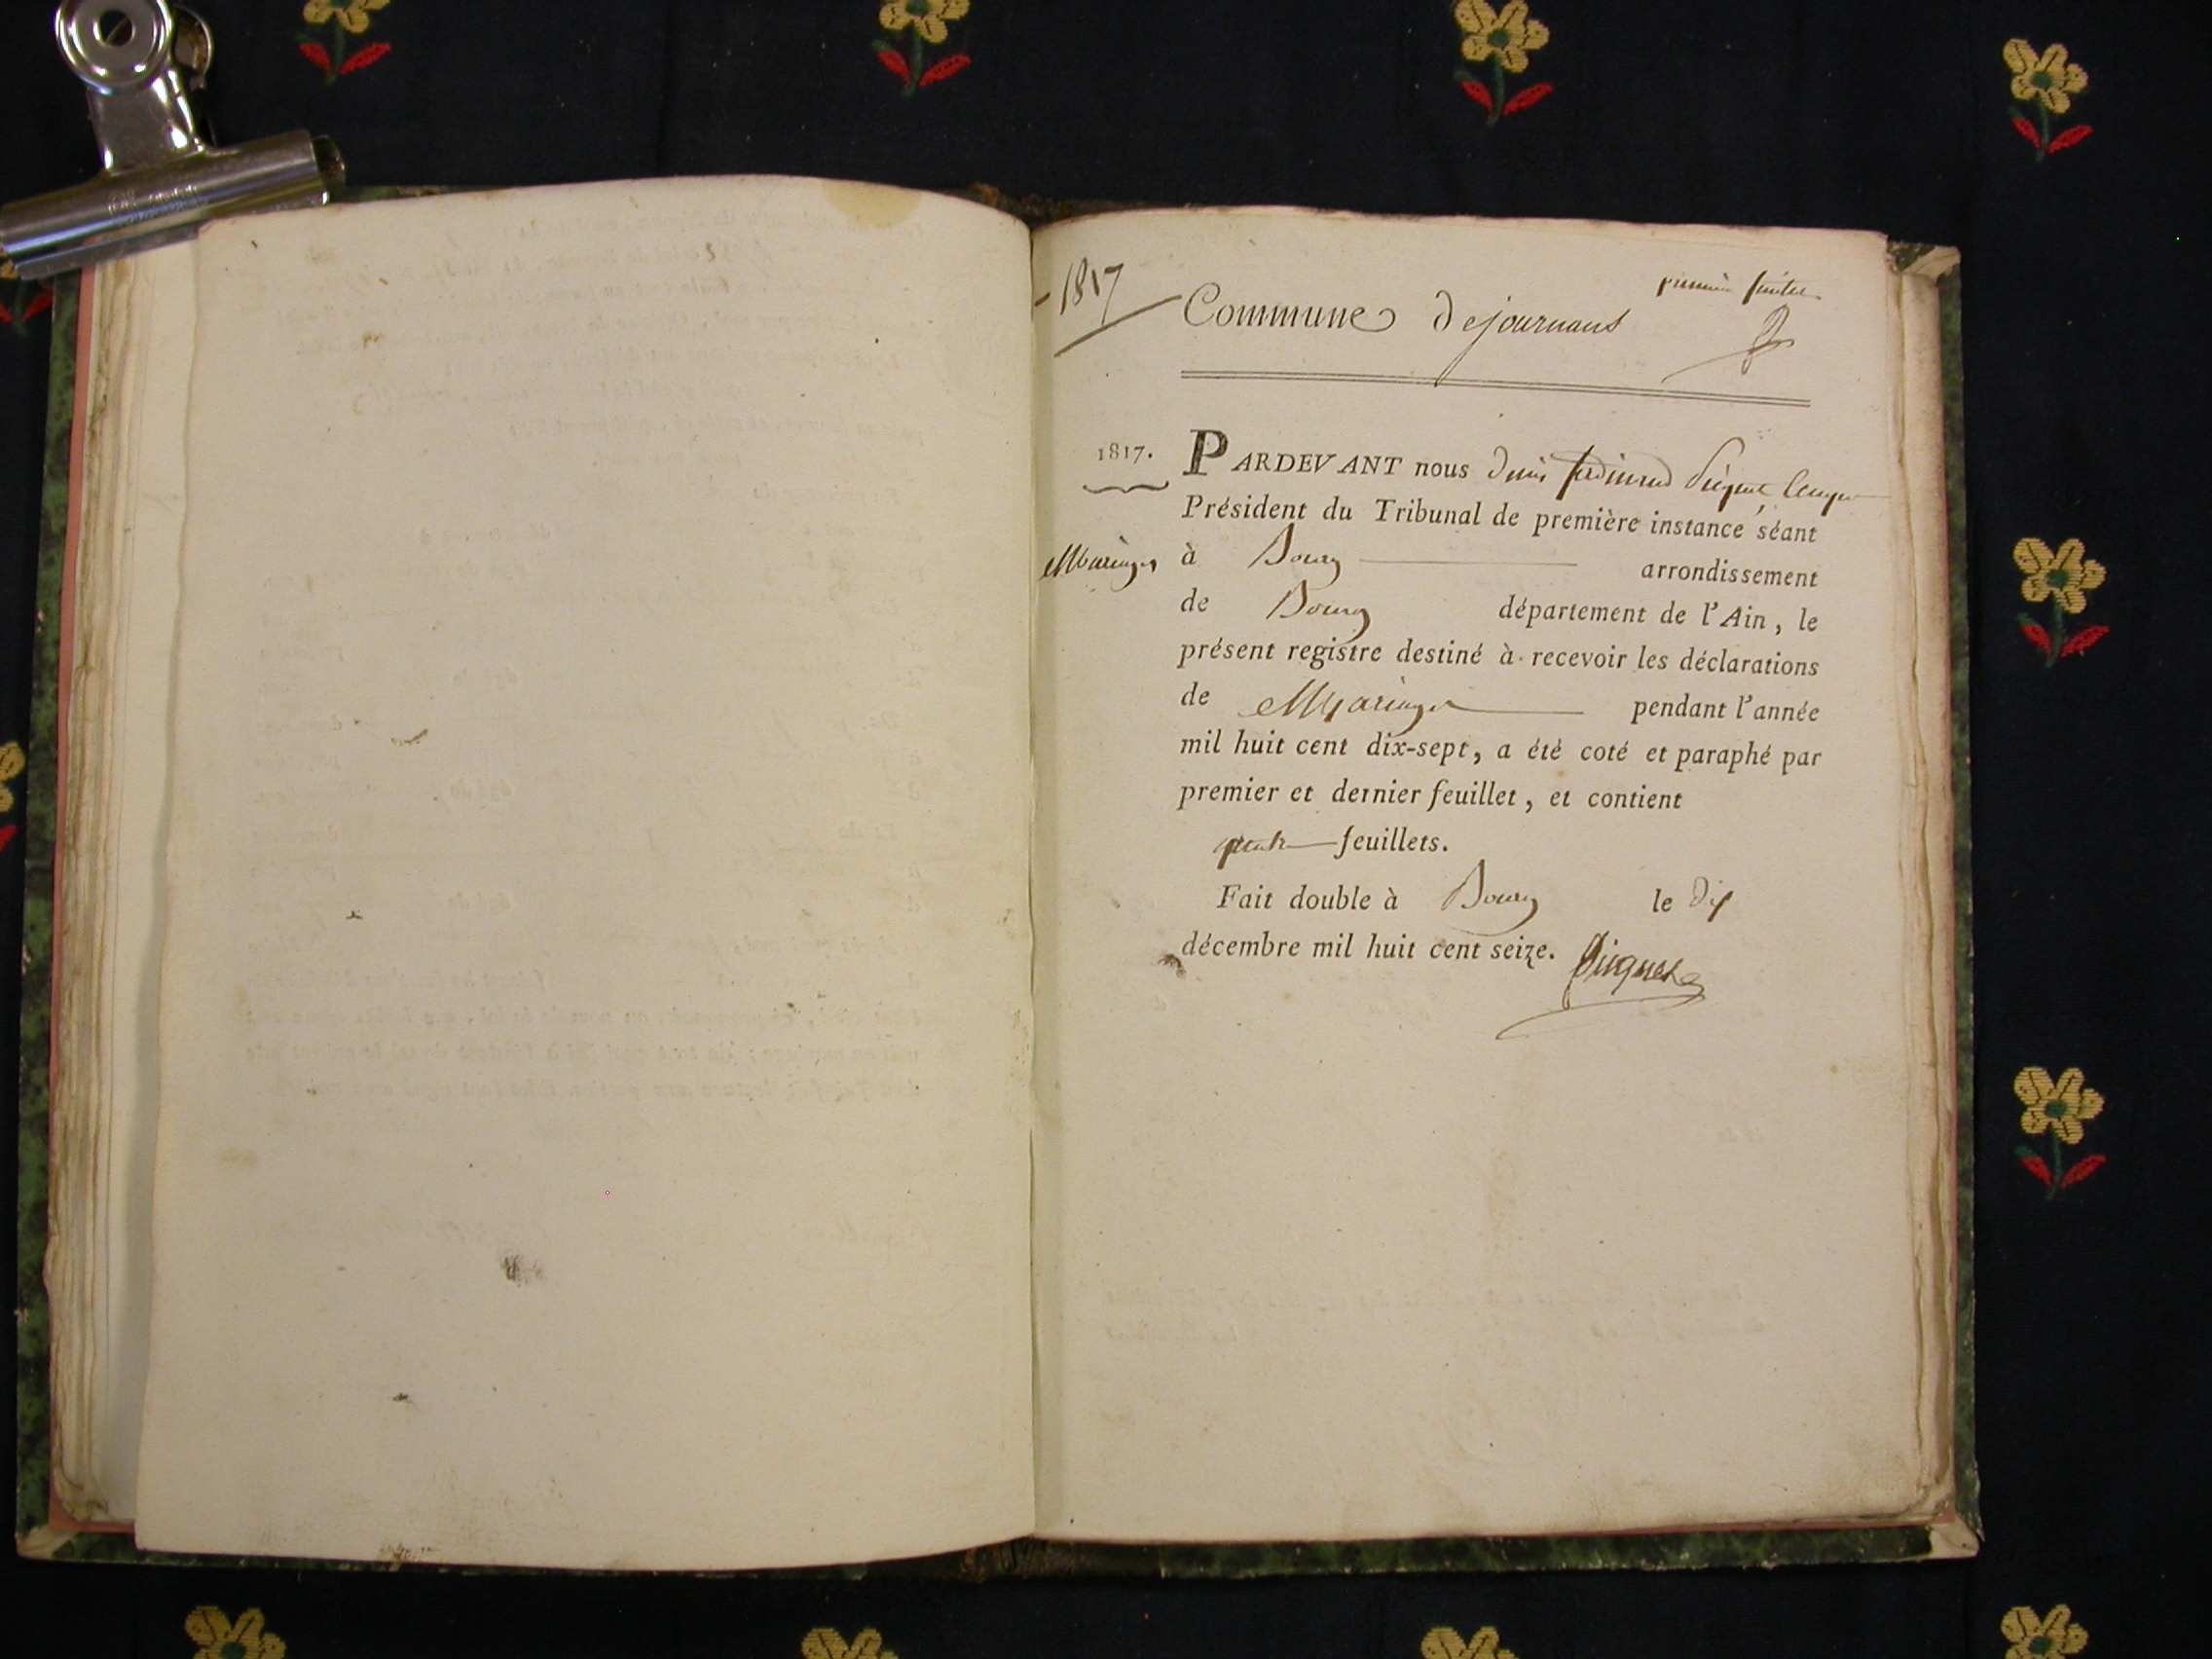 1817
premier feuillet
Commune de journans
1817.
PARDEVANT nous Denis ferdinand Picquet
Président du Tribunal de première instance séant
Mariages
à Bourg arrondissement
de Bourg département de l'Ain, le
présent registre destiné à recevoir les déclarations
de Mariages pendant l'année
mil huit cent dix-sept, a été coté et paraphé par
premier et dernier feuillet, et contient
quatre feuillets.
Fait double à Bourg le Dix
décembre mil huit cent seize. Picquet